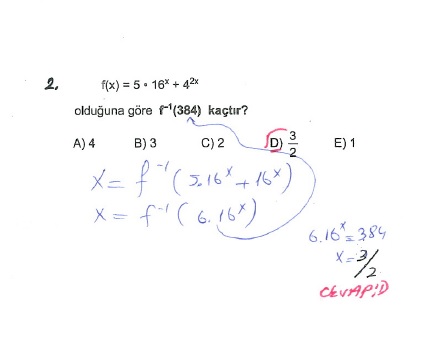 2. f(x) = 5 • 16ˣ + 4²ˣ
olduğuna göre f⁻¹(384) kaçtır?
A) 4 B) 3 C) 2 D) 3/2 E) 1
x = f⁻¹(5.16ˣ + 16ˣ)
x = f⁻¹(6.16ˣ)
6.16ˣ = 384
x = 3/2
CEVAP:D